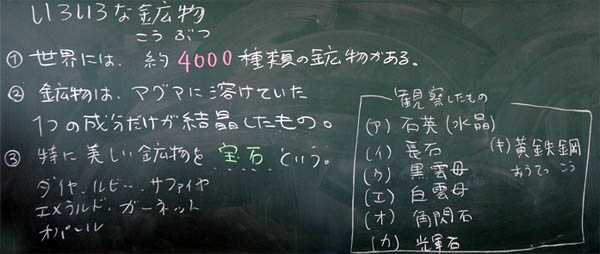 いろいろな鉱物
こうぶつ
① 世界には、約4000種類の鉱物がある。
② 鉱物は、マグマに溶けていた
1つの成分だけが結晶したもの。
③ 特に美しい鉱物を宝石という。
ダイヤ、ルビー、サファイヤ
エメラルド、ガーネット
オパール
観察したもの
(ア) 石英(水晶)
(イ) 長石
(ウ) 黒雲母
(エ) 白雲母
(オ) 角閃石
(カ) 光輝石
(キ) 黄鉄鋼
おうてっこう